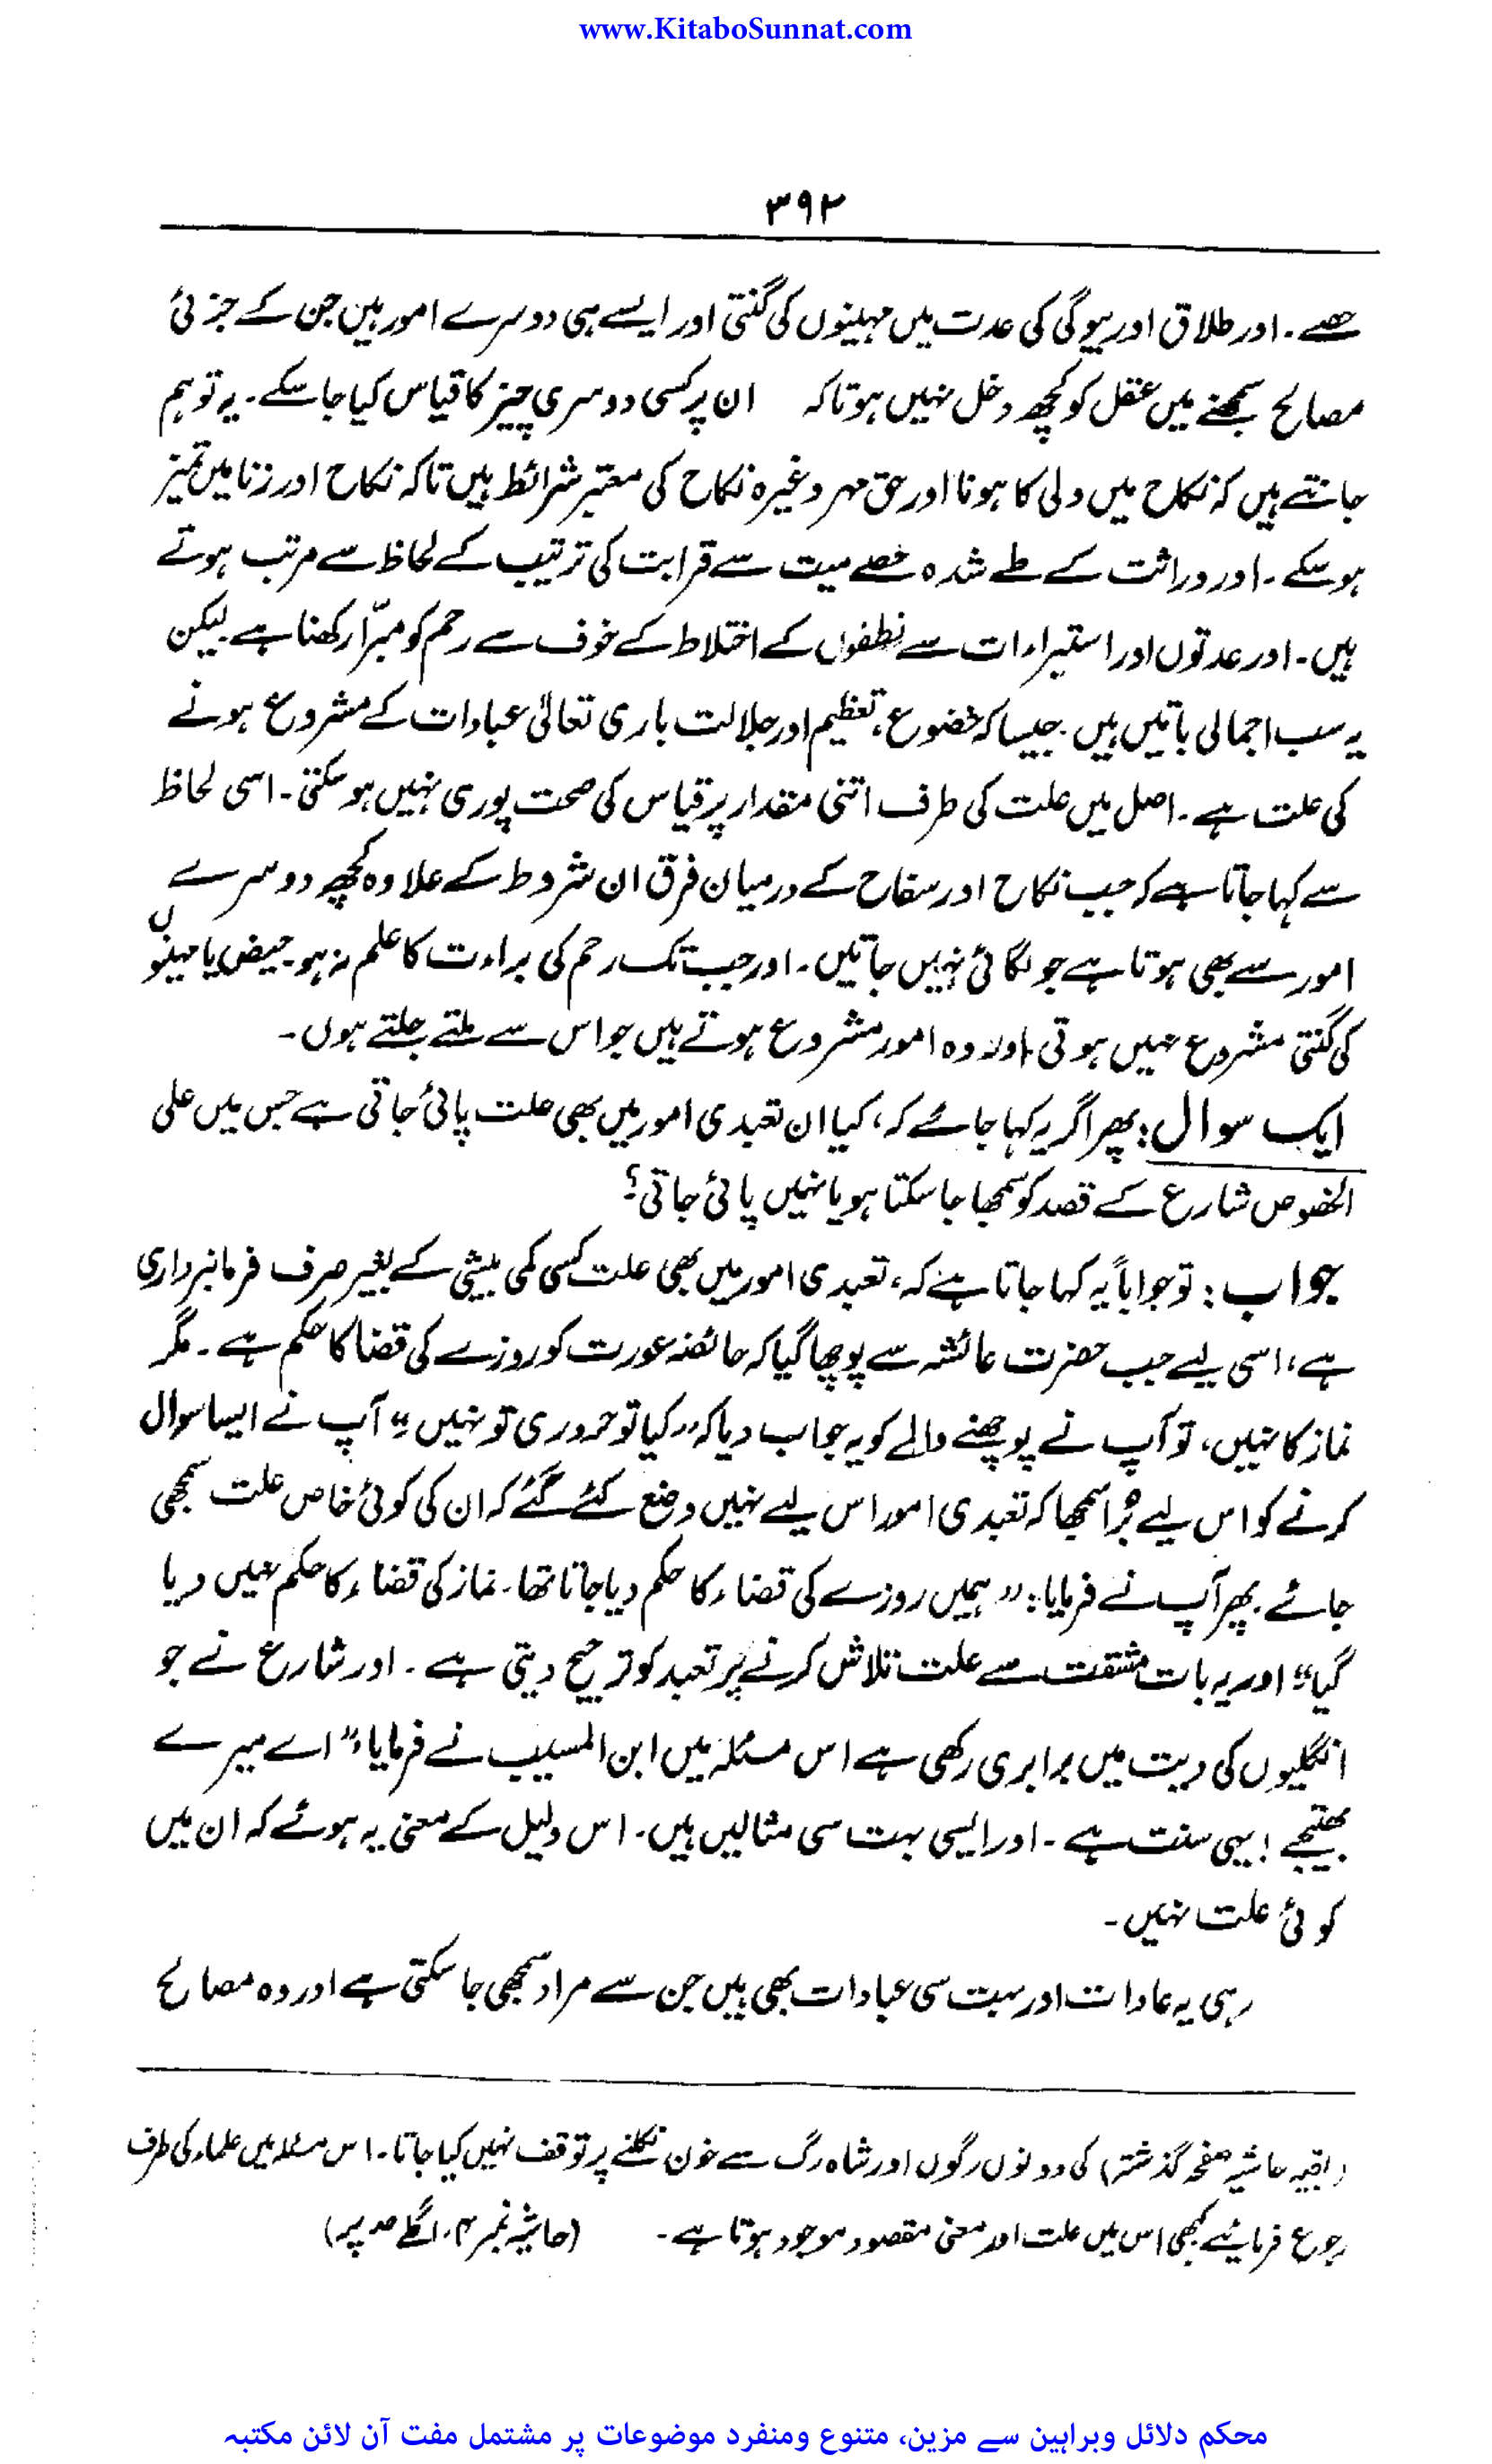 www.KitaboSunnat.com
۳۹۲
حصے۔ اور طلاق اور بیوگی کی عدت میں مہینوں کی گنتی اور ایسے ہی دوسرے امور ہیں جن کے جزئی
مصالح سمجھنے میں عقل کو کچھ دخل نہیں ہوتا کہ ان پر کسی دوسری چیز کا قیاس کیا جا سکے۔ یہ تو ہم
جانتے ہیں کہ نکاح میں ولی کا ہونا اور حق مہر وغیرہ نکاح کی معتبر شرائط ہیں تاکہ نکاح اور زنا میں تمیز
ہو سکے۔ اور وراثت کے طے شدہ حصے میت سے قرابت کی ترتیب کے لحاظ سے مرتب ہوتے
ہیں۔ اور عدتوں اور استبراءات سے نطفوں کے اختلاط کے خوف سے رحم کو مبرّا رکھنا ہے۔ لیکن
یہ سب اجمالی باتیں ہیں۔ جیسا کہ خضوع، تعظیم اور جلالت باری تعالیٰ عبادات کے مشروع ہونے
کی علت ہے۔ اصل میں علت کی طرف اتنی مقدار پر قیاس کی صحت پوری نہیں ہو سکتی۔ اسی لحاظ
سے کہا جاتا ہے کہ جب نکاح اور سفاح کے درمیان فرق ان شروط کے علاوہ کچھ دوسرے
امور سے بھی ہوتا ہے جو لگائی نہیں جاتیں۔ اور جب تک رحم کی براءت کا علم نہ ہو۔ حیض یا مہینوں
کی گنتی مشروع نہیں ہوتی۔ اور وہ امور مشروع ہوتے ہیں جو اس سے ملتے جلتے ہوں۔
ایک سوال: پھر اگر یہ کہا جائے کہ، کیا ان تعبدی امور میں بھی علت پائی جاتی ہے جس میں علی
الخصوص شارع کے قصد کو سمجھا جا سکتا ہو یا نہیں پائی جاتی؟
جواب: تو جواباً یہ کہا جاتا ہے کہ، تعبدی امور میں بھی علت کسی کمی بیشی کے بغیر صرف فرمانبرداری
ہے، اسی لیے جب حضرت عائشہ سے پوچھا گیا کہ حائضہ عورت کو روزے کی قضا کا حکم ہے۔ مگر
نماز کا نہیں، تو آپ نے پوچھنے والے کو یہ جواب دیا کہ ”کیا تو حروری تو نہیں“ آپ نے ایسا سوال
کرنے کو اس لیے بُرا سمجھا کہ تعبدی امور اس لیے نہیں وضع کئے گئے کہ ان کی کوئی خاص علت سمجھی
جائے۔ پھر آپ نے فرمایا: ”ہمیں روزے کی قضاء کا حکم دیا جاتا تھا۔ نماز کی قضاء کا حکم نہیں دیا
گیا“ اور یہ بات مشقت سے علت تلاش کرنے پر تعبد کو ترجیح دیتی ہے۔ اور شارع نے جو
انگلیوں کی دیت میں برابری رکھی ہے اس مسئلہ میں ابن المسیب نے فرمایا، ”اے میرے
بھتیجے! یہی سنت ہے۔ اور ایسی بہت سی مثالیں ہیں۔ اس دلیل کے معنی یہ ہوئے کہ ان میں
کوئی علت نہیں۔
رہی یہ عادات اور بہت سی عبادات بھی ہیں جن سے مراد سمجھی جا سکتی ہے اور وہ مصالح
(بقیہ حاشیہ صفحہ گذشتہ) کی دونوں رگوں اور شاہ رگ سے خون نکلنے پر توقف نہیں کیا جاتا۔ اس مسئلہ میں علماء کی طرف
رجوع فرمائیے کبھی اس میں علت اور معنی مقصود موجود ہوتا ہے۔ (حاشیہ نمبر ۴، اگلے صہ پر)
محکم دلائل وبراہین سے مزین، متنوع ومنفرد موضوعات پر مشتمل مفت آن لائن مکتبہ